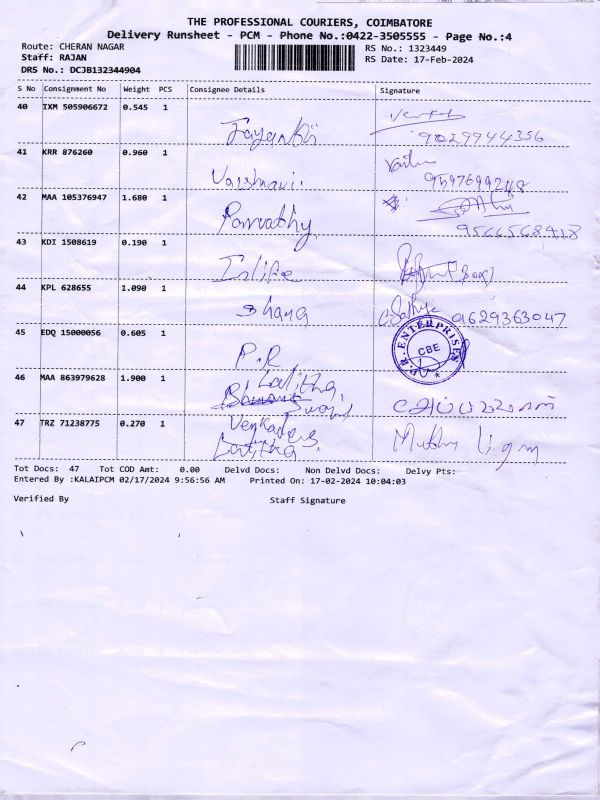 THE PROFESSIONAL COURIERS, COIMBATORE
Delivery Runsheet - PCM - Phone No.:0422-3505555 - Page No.:4
Route: CHERAN NAGAR
Staff: RAJAN
DRS No.: DCJB132344904
RS No.: 1323449
RS Date: 17-Feb-2024
S No Consignment No Weight PCS Consignee Details Signature
40 IXM 505906672 0.545 1
9029944356
41 KRR 876260 0.960 1
Vaishnavi.
42 MAA 105376947 1.680 1
Parvathy
9566568418
43 KDI 1508619 0.190 1
44 KPL 628655 1.090 1
C. Sathya 9629363047
45 EDQ 15000056 0.605 1
P.R
R. ENTERPRISES
CBE
46 MAA 863979628 1.900 1
Lalitha
47 TRZ 71238775 0.270 1
Lalitha
Tot Docs: 47 Tot COD Amt: 0.00 Delvd Docs: Non Delvd Docs: Delvy Pts:
Entered By :KALAIPCM 02/17/2024 9:56:56 AM Printed On: 17-02-2024 10:04:03
Verified By Staff Signature